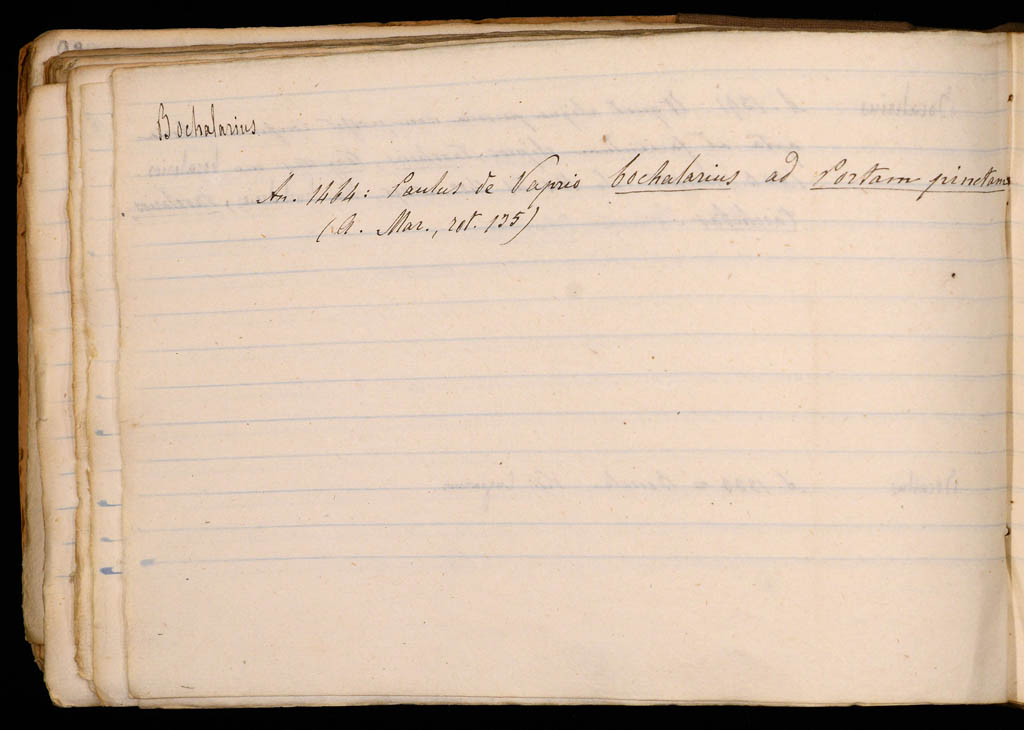 Bochalarius
An. 1464: Paulus de Vaprio bochalarius ad Portam pinctam
(A. Mar., rot. 135)